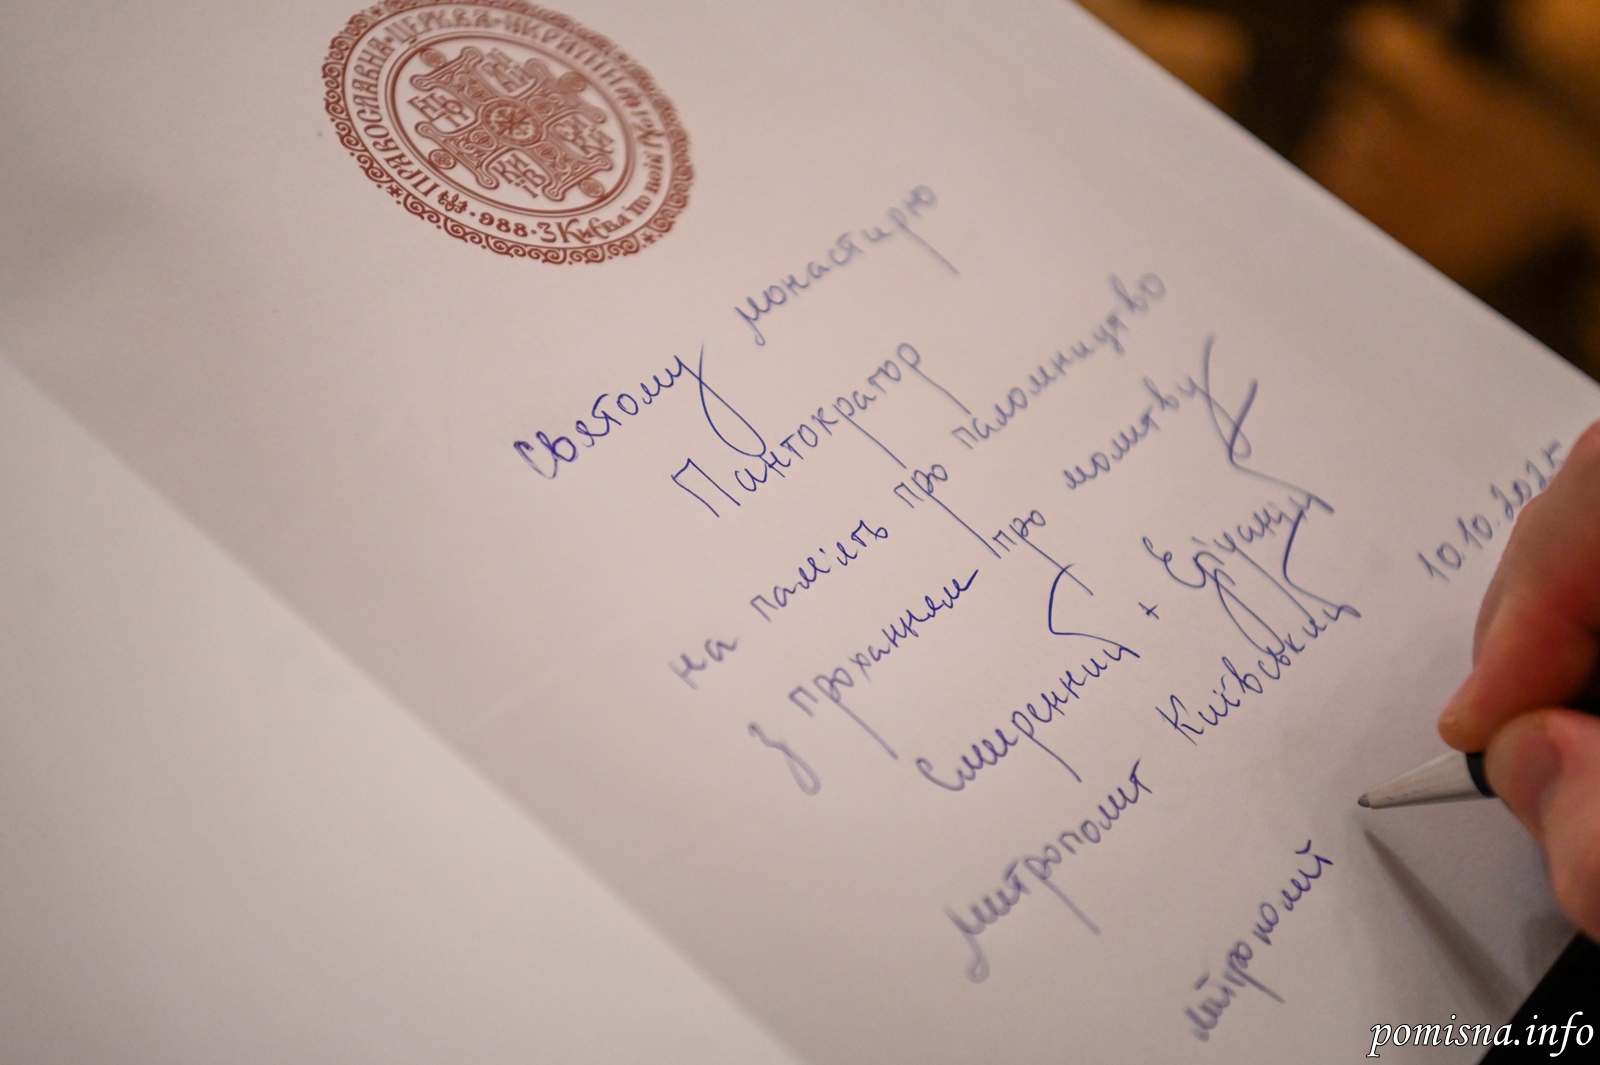 ПРАВОСЛАВНА ЦЕРКВА УКРАЇНИ
988 · З Києва по всій
Святому монастирю
Пантократор
на пам'ять про паломництво
з проханням про молитву
Смиренний + Епіфаній
Митрополит Київський
10.10.202
митрополит
pomisna.info